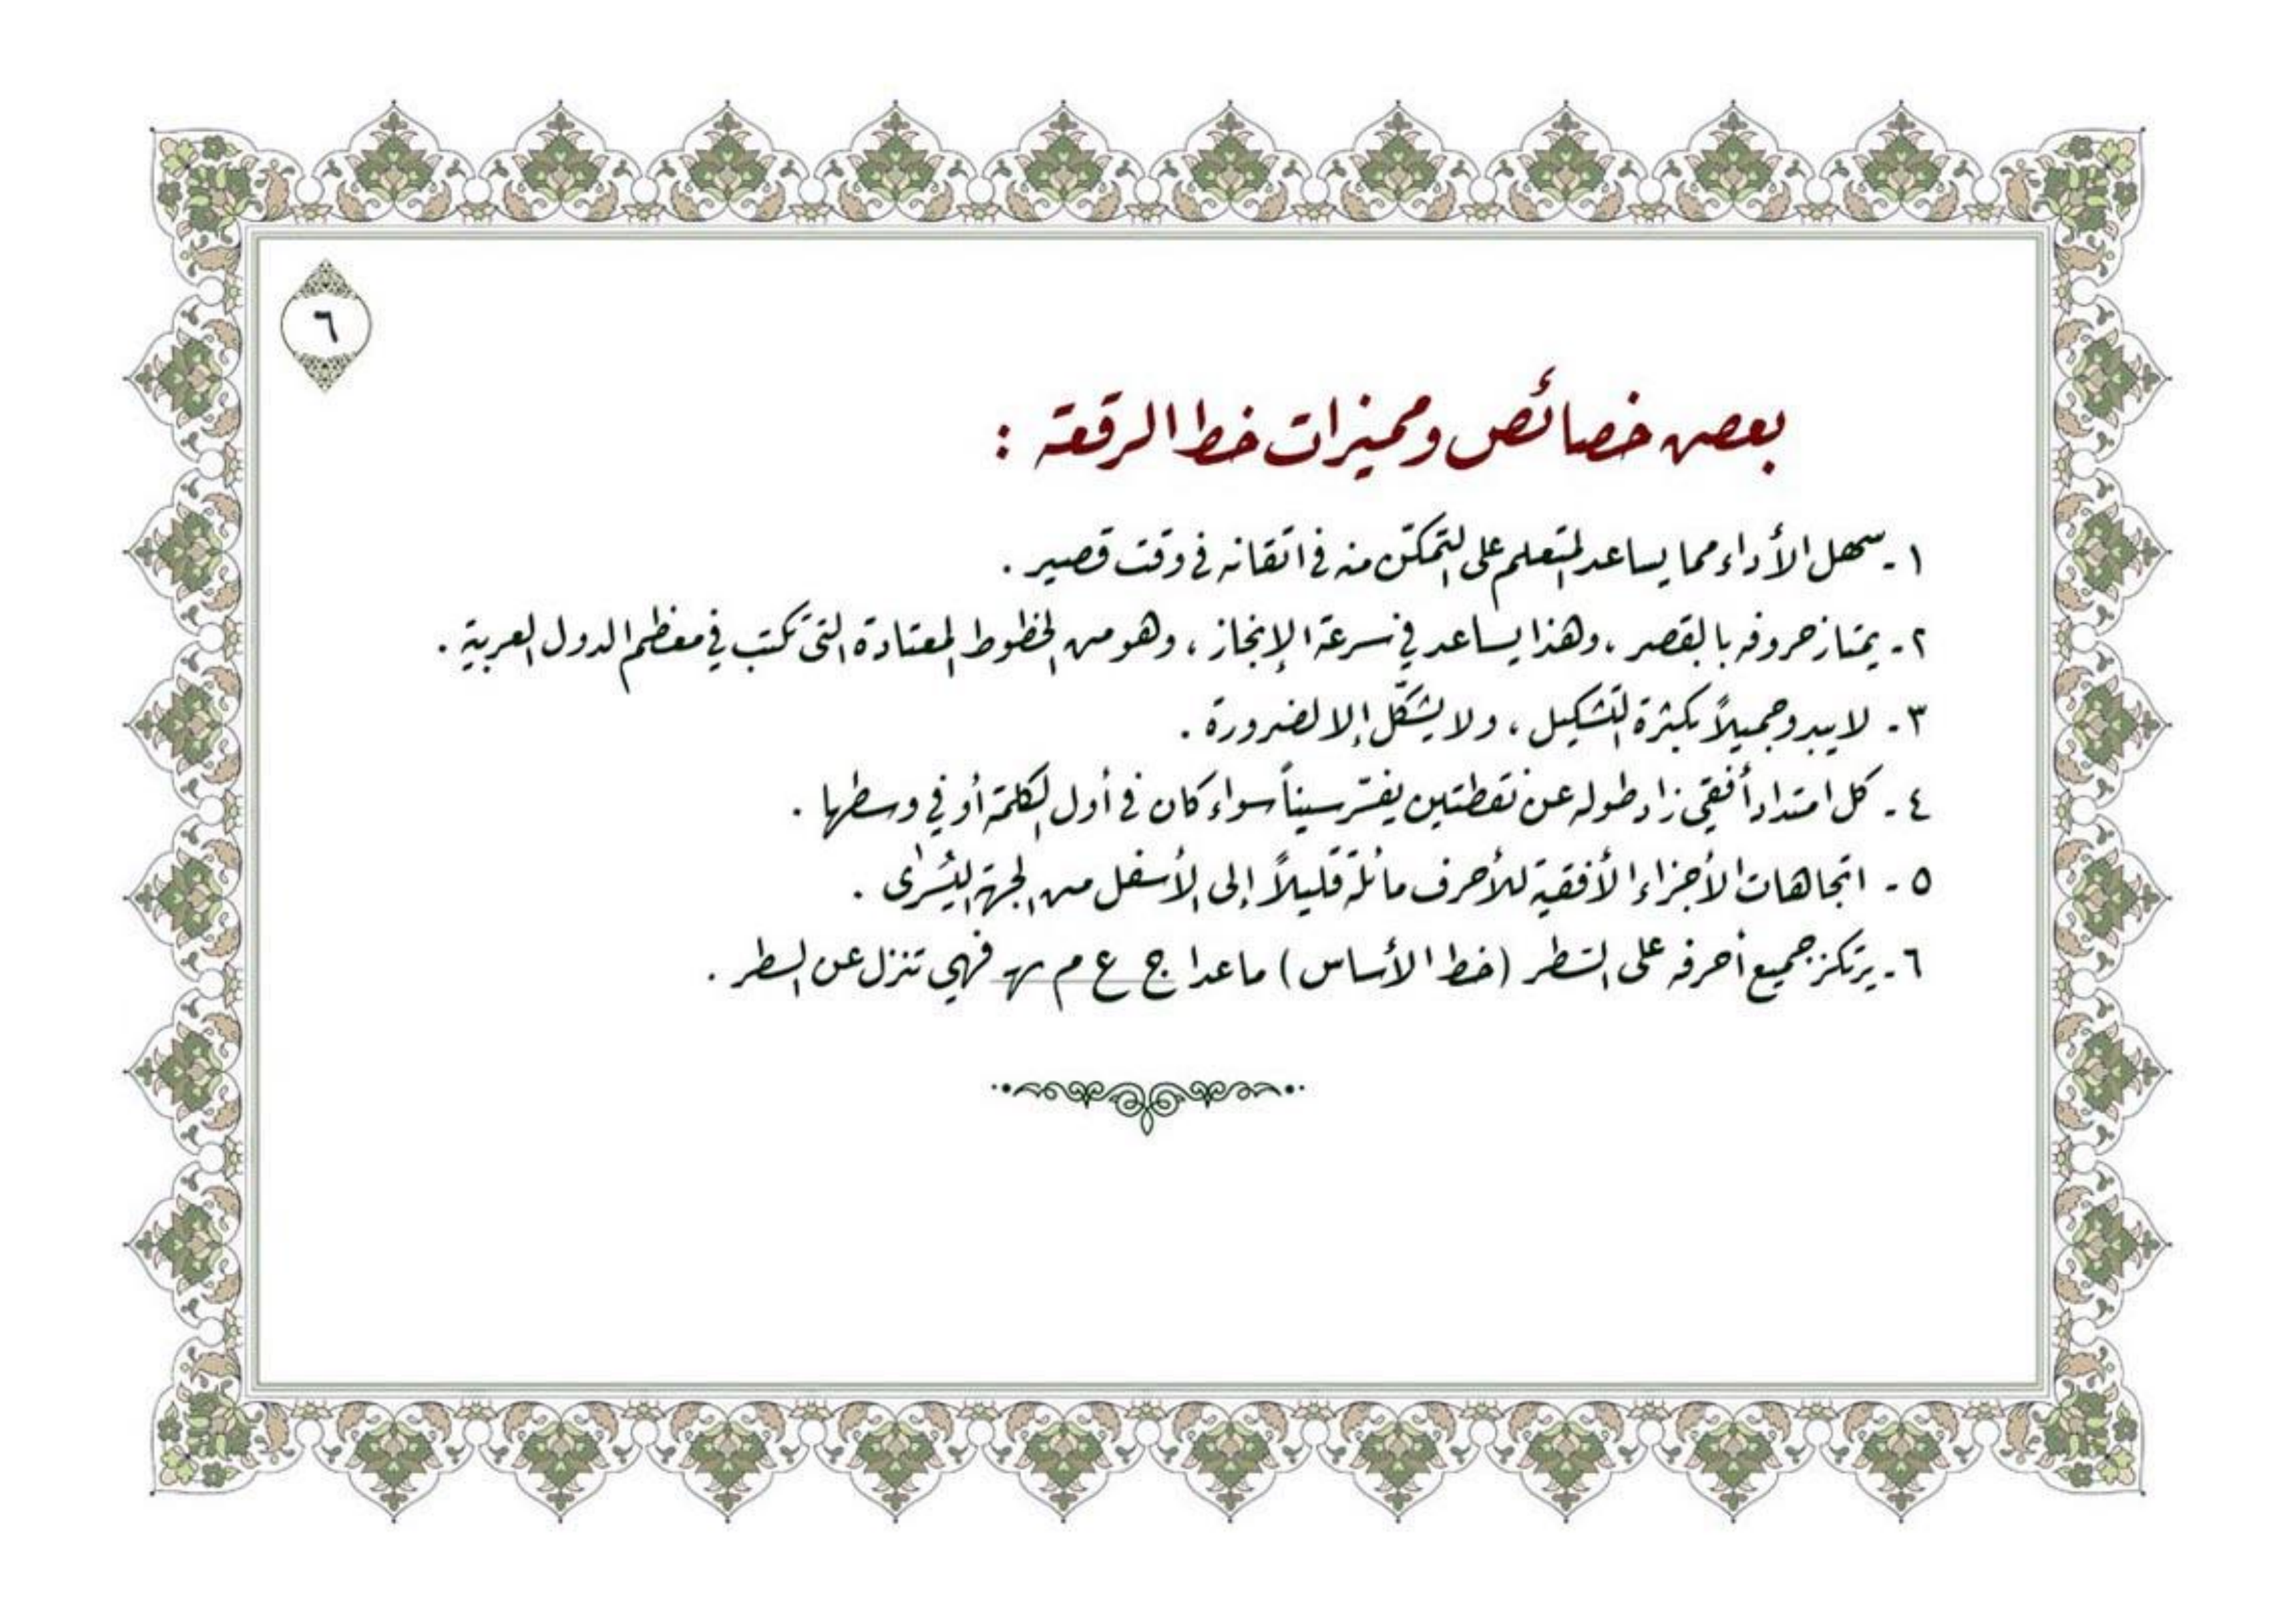 ٦
بعض خصائص ومميزات خط الرقعة :
١ - سهل الأداء مما يساعد المتعلم على التمكّن منه في اتقانه في وقت قصير .
٢ - يمتاز حروفه بالقصر ، وهذا يساعد في سرعة الإنجاز ، وهو من الخطوط المعتادة التي تكتب في معظم الدول العربية .
٣ - لا يبدو جميلاً بكثرة التشكيل ، ولا يشكّل إلا لضرورة .
٤ - كل امتداد أفقي زاد طوله عن نقطتين يفسّر سيناً سواء كان في أول الكلمة أو في وسطها .
٥ - اتجاهات الأجزاء الأفقية للأحرف مائلة قليلاً إلى الأسفل من الجهة اليُسرى .
٦ - يرتكز جميع أحرفه على السّطر (خط الأساس) ما عدا ج ع م ـهـ فهي تنزل عن السطر .